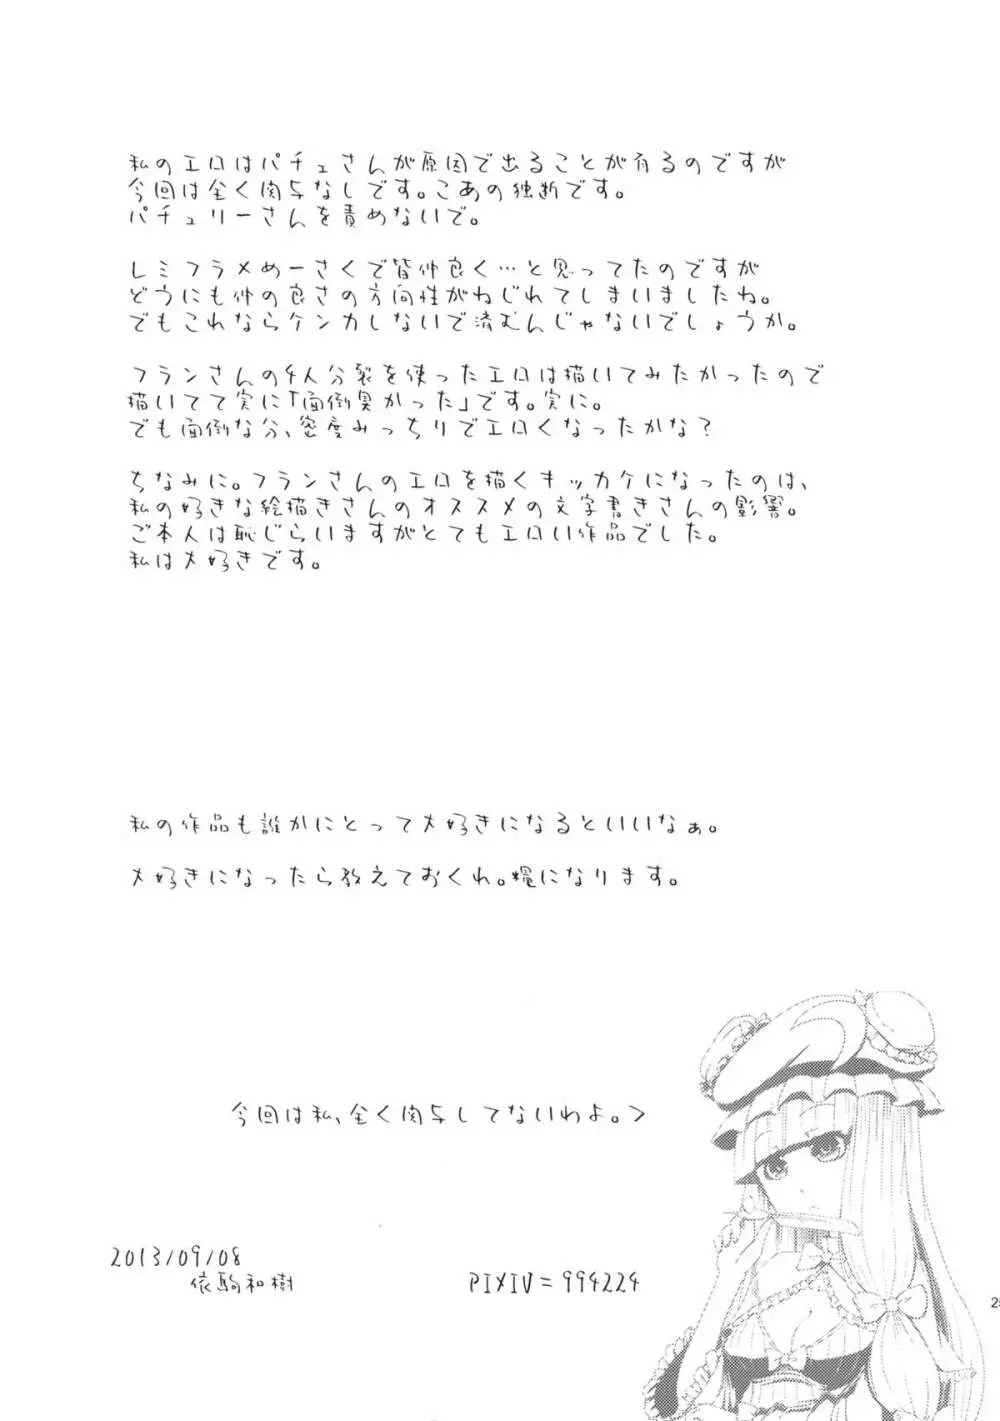 私のエロはパチュさんが原因で出ることが有るのですが
今回は全く関与なしです。こあの独断です。
パチュリーさんを責めないで。
レミフラメめーさくで皆仲良く…と思ってたのですが
どうにも仲の良さの方向性がねじれてしまいましたね。
でもこれならケンカしないで済むんじゃないでしょうか。
フランさんの4人分裂を使ったエロは描いてみたかったので
描いてて実に「面倒臭かった」です。実に。
でも面倒な分、密度みっちりでエロくなったかな？
ちなみに。フランさんのエロを描くキッカケになったのは、
私の好きな絵描きさんのオススメの文字書きさんの影響。
ご本人は恥じらいますがとてもエロい作品でした。
私は大好きです。
私の作品も誰かにとって大好きになるといいなぁ。
大好きになったら教えておくれ。糧になります。
今回は私、全く関与してないわよ。>
2013/09/08
依駒和樹
PIXIV=994224